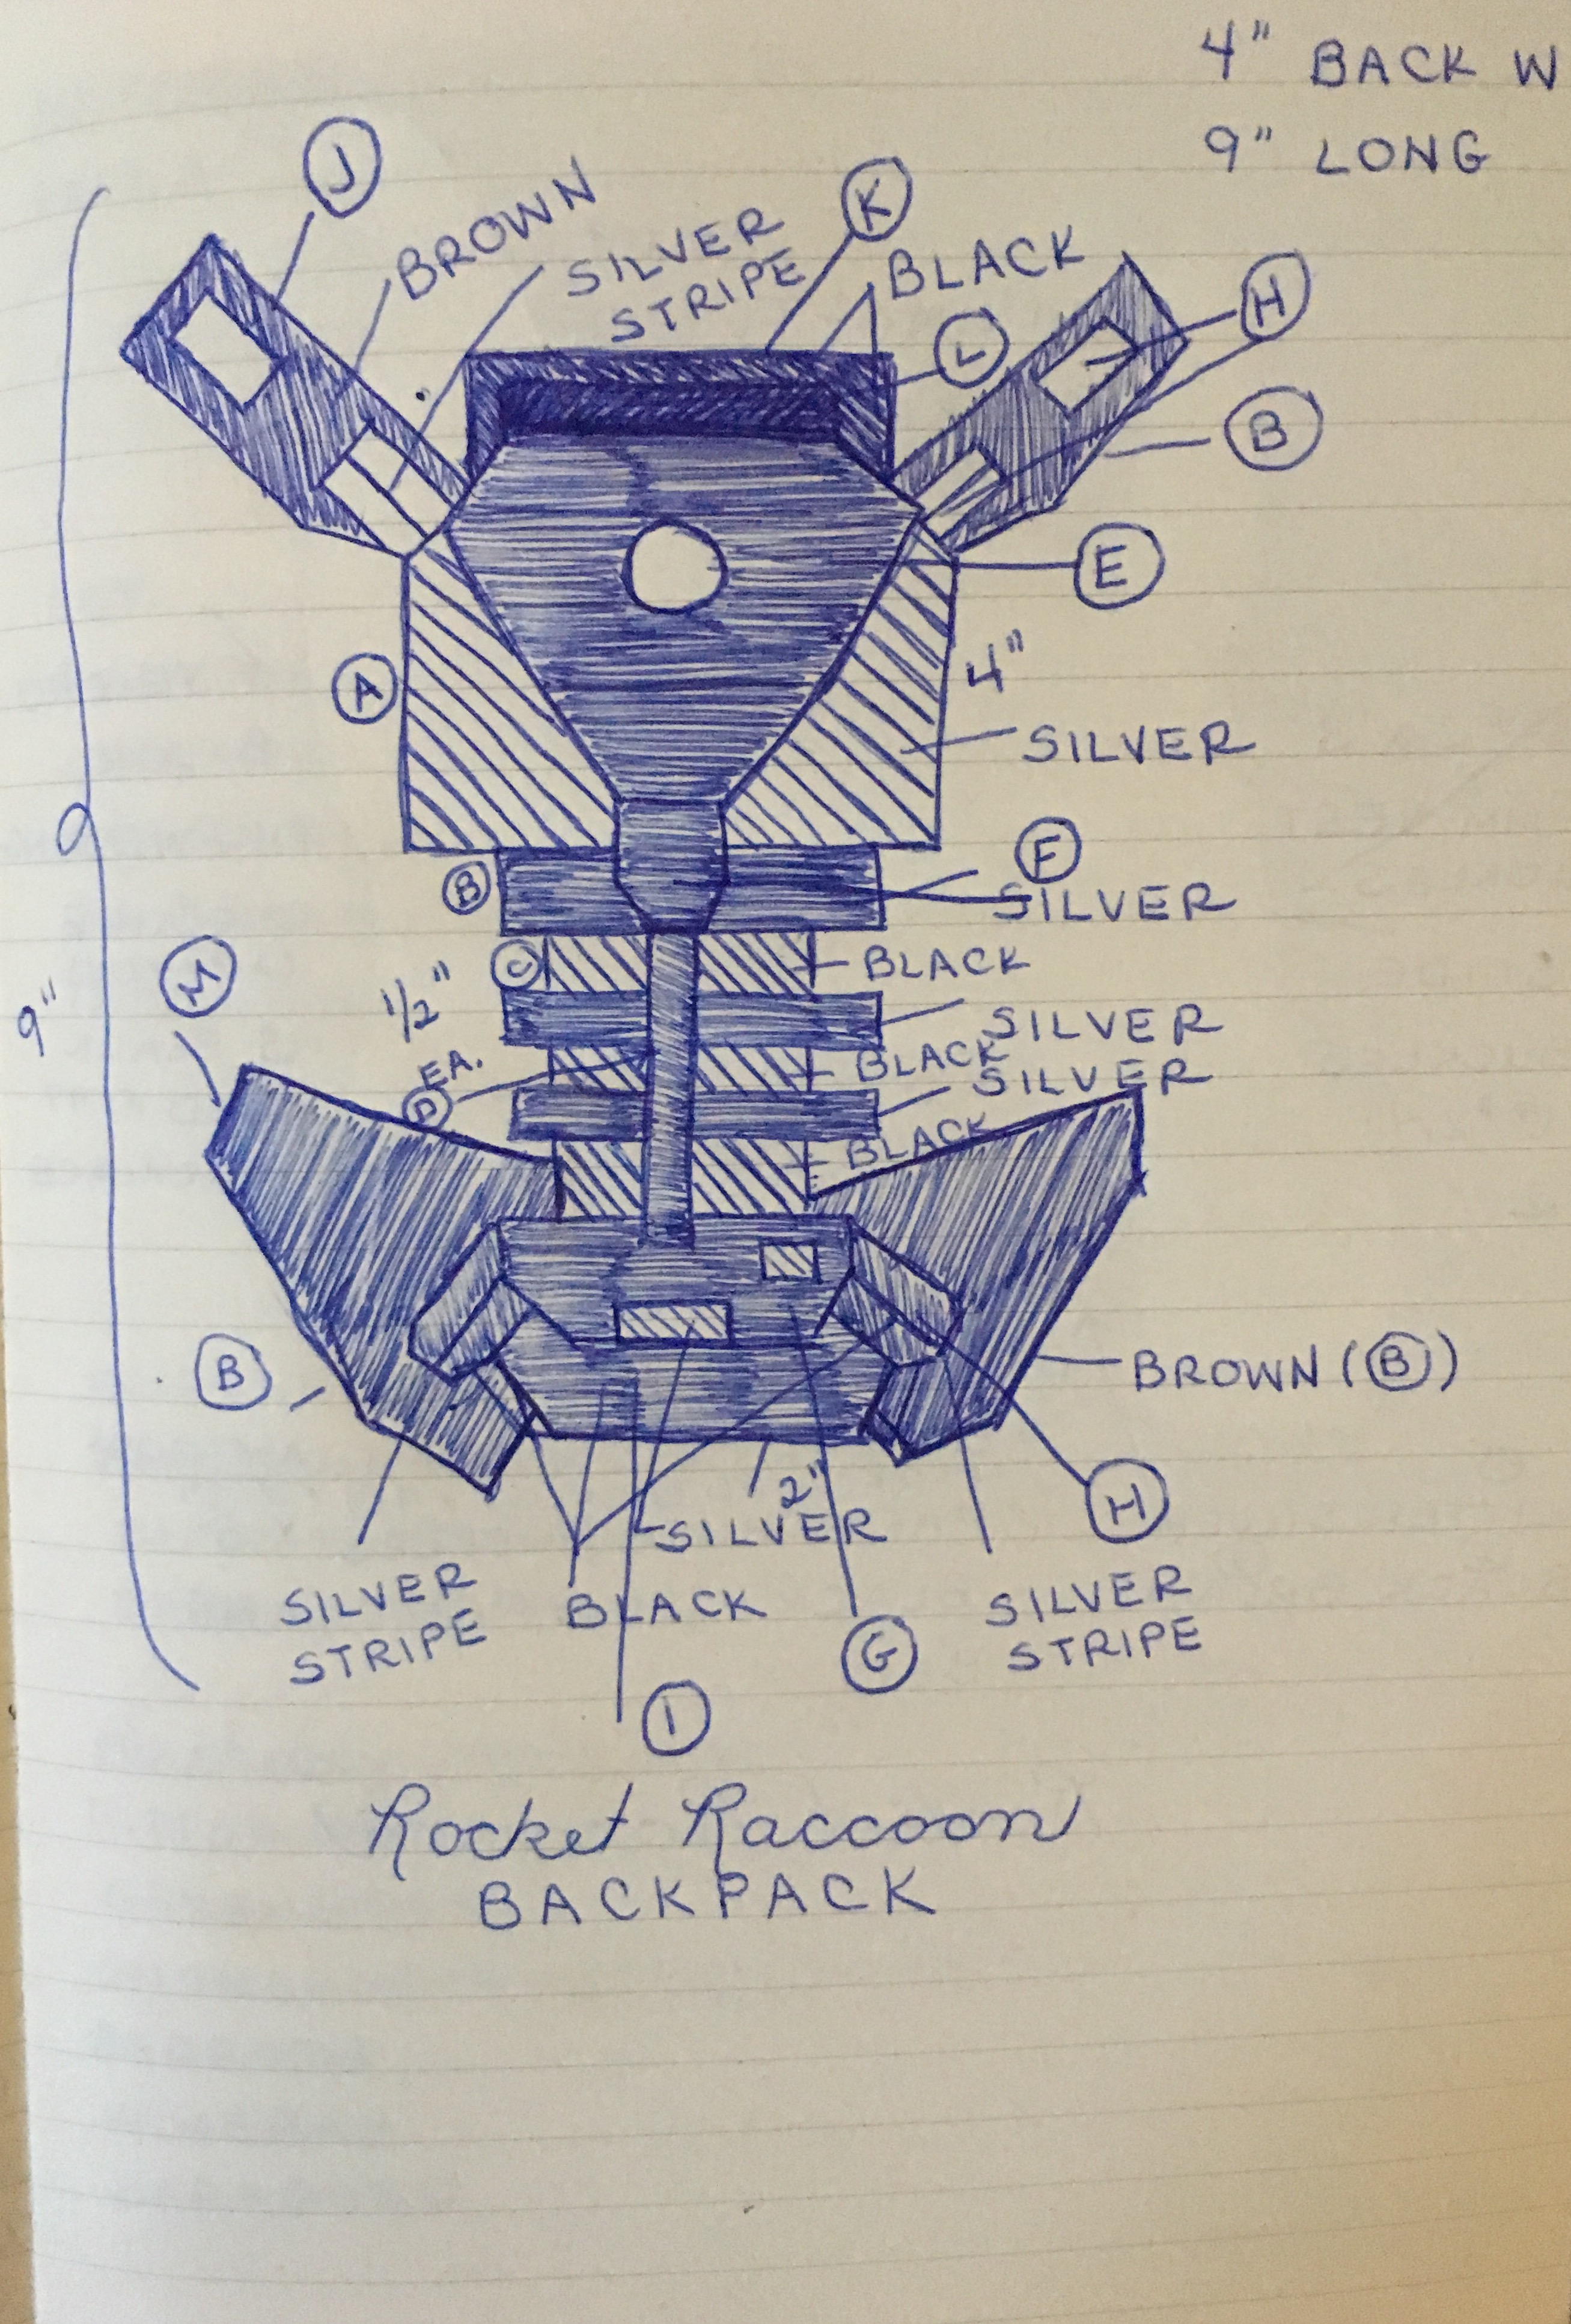 4" BACK W
9" LONG
J
BROWN
SILVER
STRIPE
K
BLACK
H
L
B
E
A
4"
SILVER
F
B
SILVER
C
BLACK
M
1/2"
EA.
SILVER
BLACK
SILVER
D
BLACK
9"
B
BROWN (B)
H
2"
SILVER
SILVER
STRIPE
BLACK
SILVER
STRIPE
G
I
Rocket Raccoon
BACKPACK